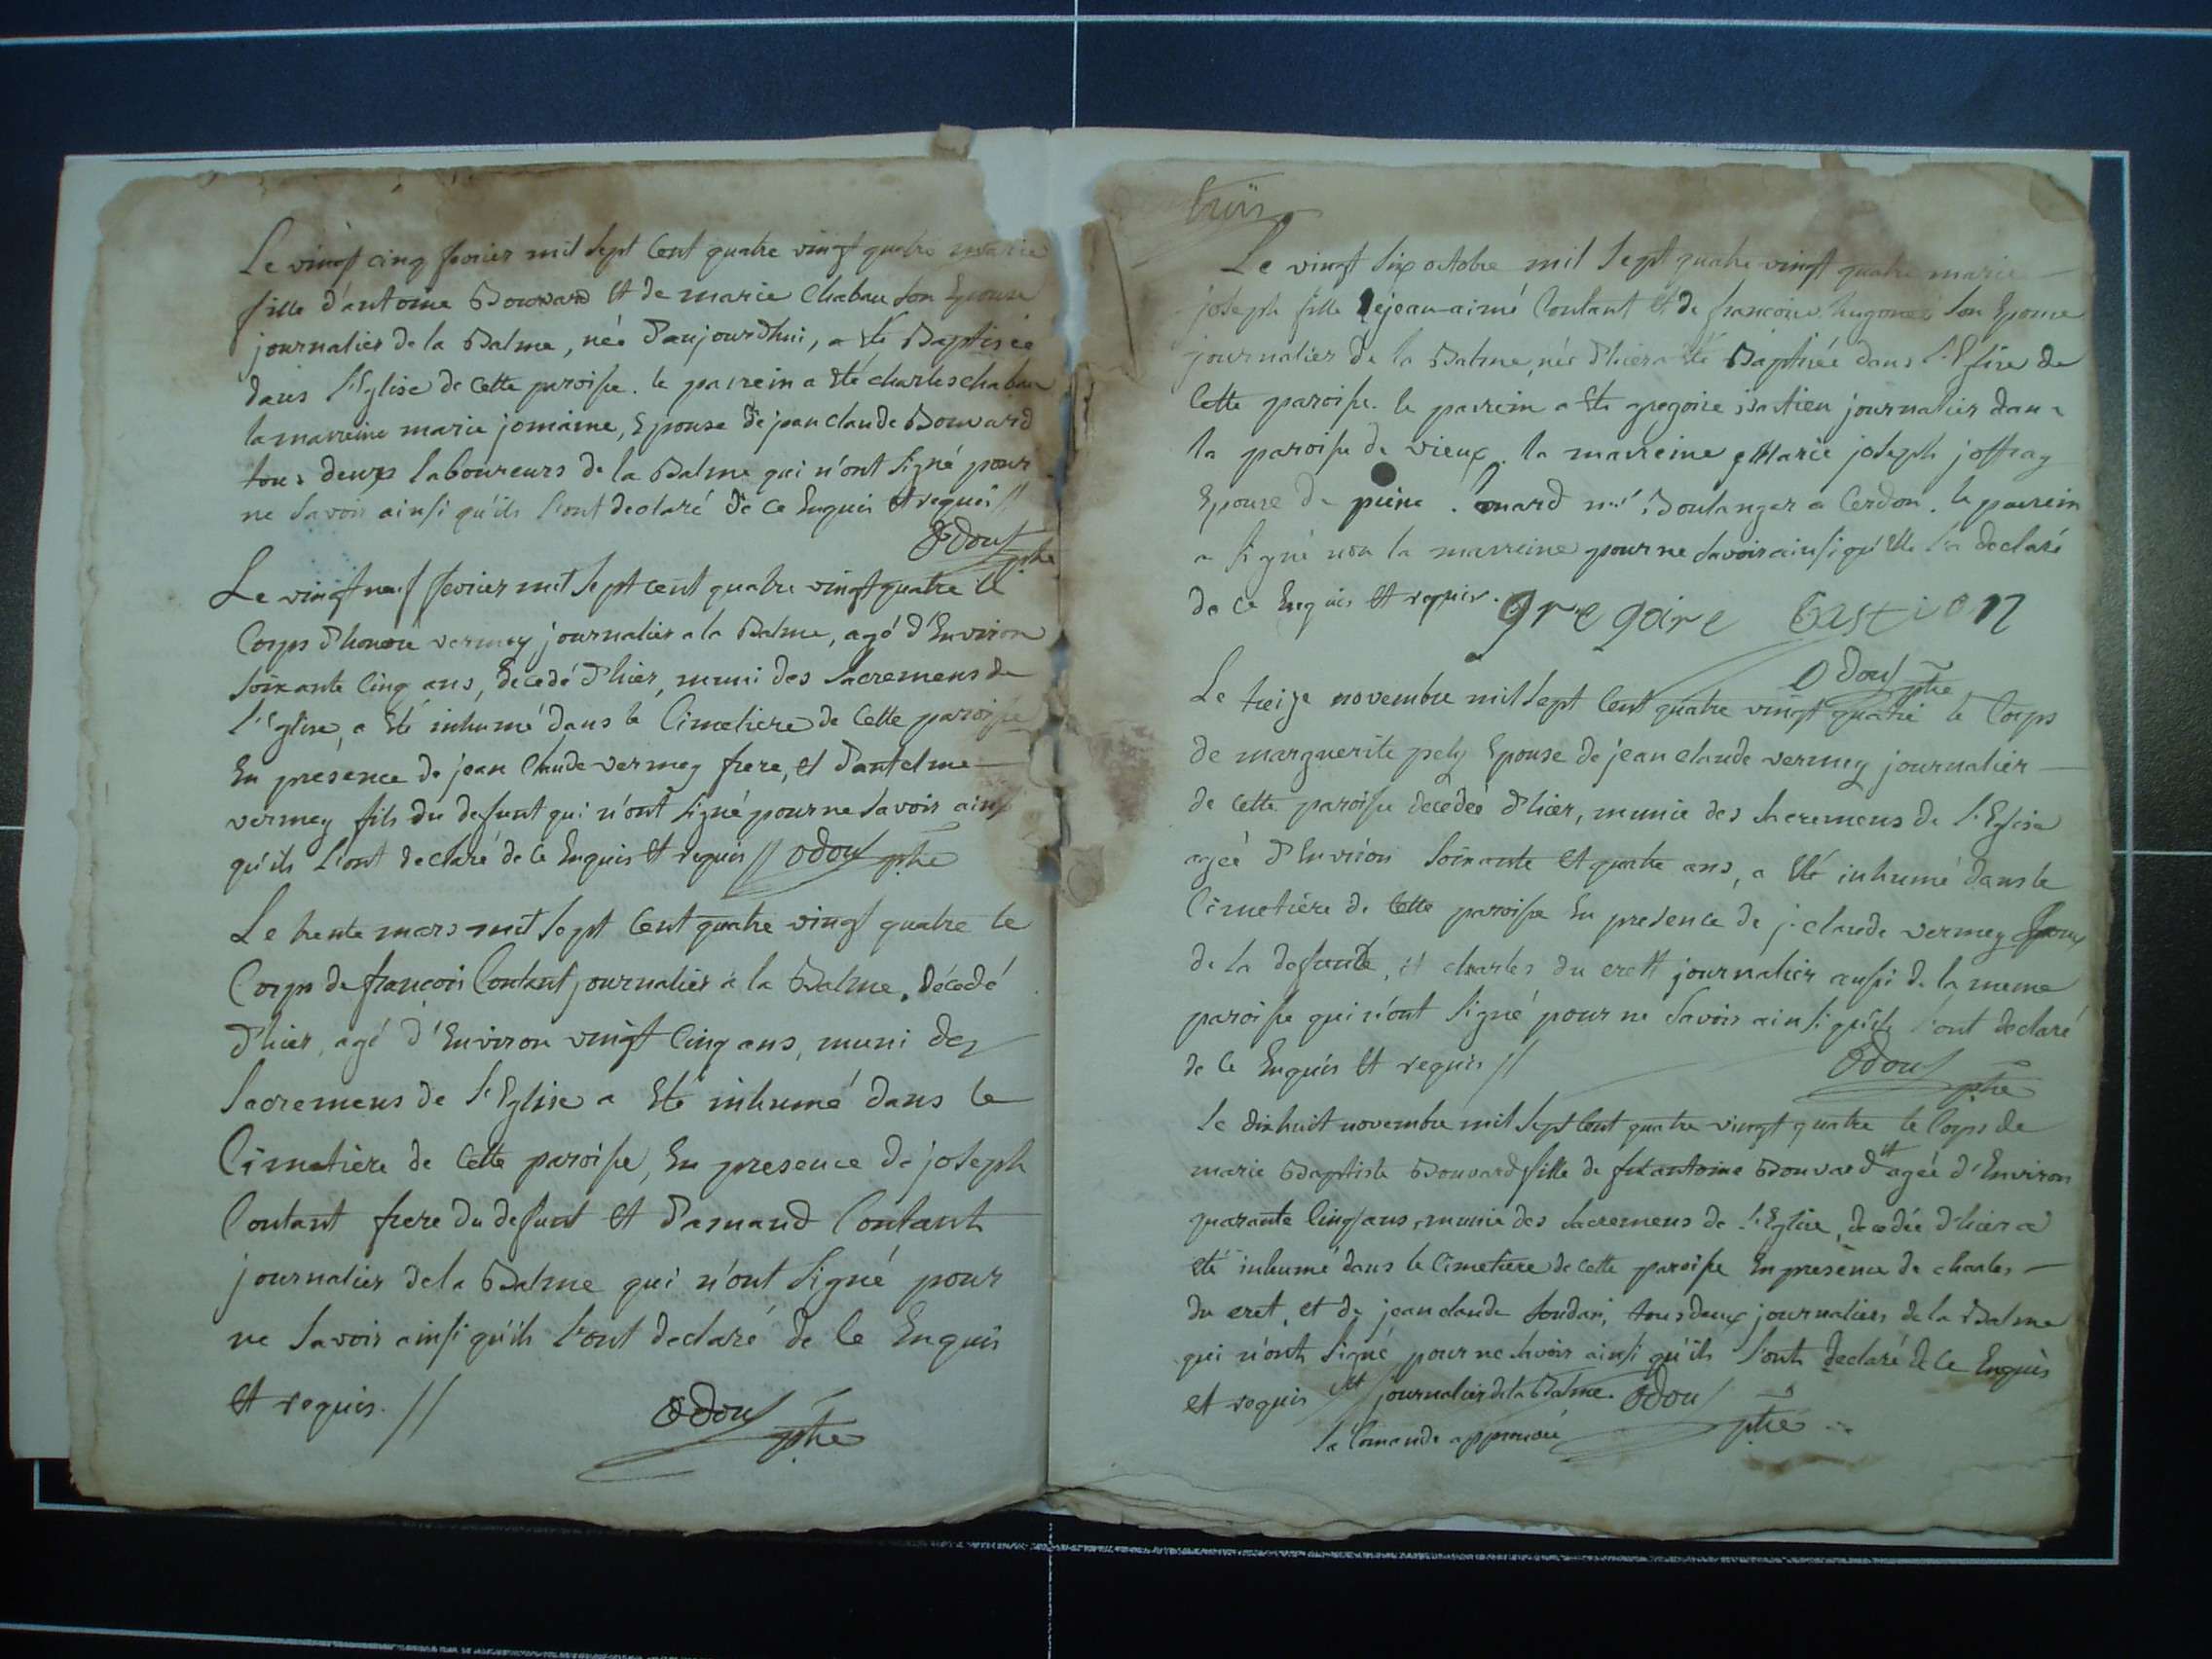 Le vingt cinq fevrier mil sept cent quatre vingt quatre marie
fille d'antoine Bouvard et de marie Chabau son Epouse
journalier de la Balme, née d'aujourdhui, a été Baptisée
dans l'Eglise de cette paroisse. le parrein a été charles chabau
la marreine marie jomaine, Epouse de jean claude Bouvard
tous deux laboureurs de la Balme qui n'ont signé pour
ne savoir ainsi qu'ils l'ont declaré de ce Enquis et requis //
Odous ptre
Le vingt neuf fevrier mil sept cent quatre vingt quatre le
Corps d'honoré vermey journalier a la Balme, agé d'Environ
soixante cinq ans, decedé d'hier, muni des sacremens de
l'Eglise, a été inhumé dans le Cimetiere de cette paroisse
En presence de jean claude vermey frere, et d'antelme
vermey fils du defunt qui n'ont signé pour ne savoir ainsi
qu'ils l'ont declaré de ce Enquis et requis // Odous ptre
Le trente mars mil sept cent quatre vingt quatre le
Corps de françois Contant journalier à la Balme, décedé
d'hier, agé d'Environ vingt cinq ans, muni des
sacremens de l'Eglise a été inhumé dans le
Cimetière de cette paroisse, En presence de joseph
Contant frere du defunt et d'amand Contant
journalier de la Balme qui n'ont signé pour
ne savoir ainsi qu'ils l'ont declaré de ce Enquis
et requis. //
Odous ptre
Le vingt six octobre mil sept quatre vingt quatre marie
joseph fille de jean aimé Contant et de francoise hugonet son Epouse
journalier de la Balme, née d'hier a été Baptisée dans l'Eglise de
cette paroisse. le parrein a été gregoire Bastien journalier dans
la paroisse de vieux. la marreine Marie joseph joffray
Epouse de Boulanger a Cerdon. le parrein
a signé non la marreine pour ne savoir ainsi qu'elle l'a declaré
de ce Enquis et requis. gregoire bastion
Odous ptre
Le treize novembre mil sept cent quatre vingt quatre le Corps
de marguerite pely Epouse de jean claude vermey journalier
de cette paroisse decedée d'hier, munie des sacremens de l'Eglise
agée d'Environ soixante et quatre ans, a été inhumé dans le
Cimetière de cette paroisse En presence de j. claude vermey Epoux
de la defunte, et charles du crett journalier aussi de la meme
paroisse qui n'ont signé pour ne savoir ainsi qu'ils l'ont declaré
de ce Enquis et requis //
Odous ptre
Le dixhuit novembre mil sept cent quatre vingt quatre le Corps de
marie Baptiste Bouvard fille de feu antoine Bouvard agée d'Environ
quarante cinq ans, munie des sacremens de l'Eglise, decedée d'hier a
été inhumé dans le Cimetiere de cette paroisse En presence de charles
du cret, et de jean claude soudan, tous deux journaliers de la Balme
qui n'ont signé pour ne savoir ainsi qu'ils l'ont declaré de ce Enquis
et requis // journalier de la Balme. Odous ptre